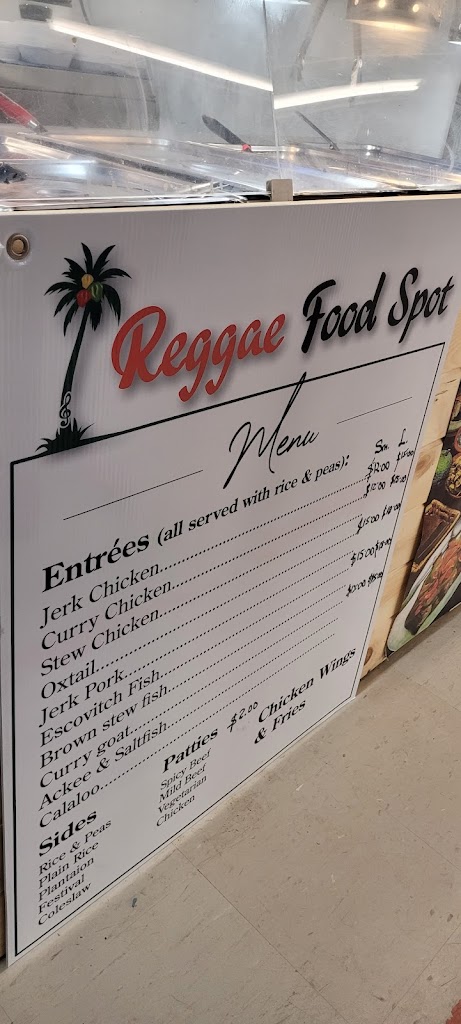 Reggae Food Spot
Menu
Sm. L
Entrées (all served with rice & peas):
Jerk Chicken $12.00 $15.00
Curry Chicken $12.00
Stew Chicken
Oxtail $15.00
Jerk Pork $15.00
Escovitch Fish
Brown stew fish
Curry goat
Ackee & Saltfish
Calaloo
Sides
Rice & Peas
Plain Rice
Plantaion
Festival
Coleslaw
Patties $2.00
Spicy Beef
Mild Beef
Vegetarian
Chicken
Chicken Wings
& Fries